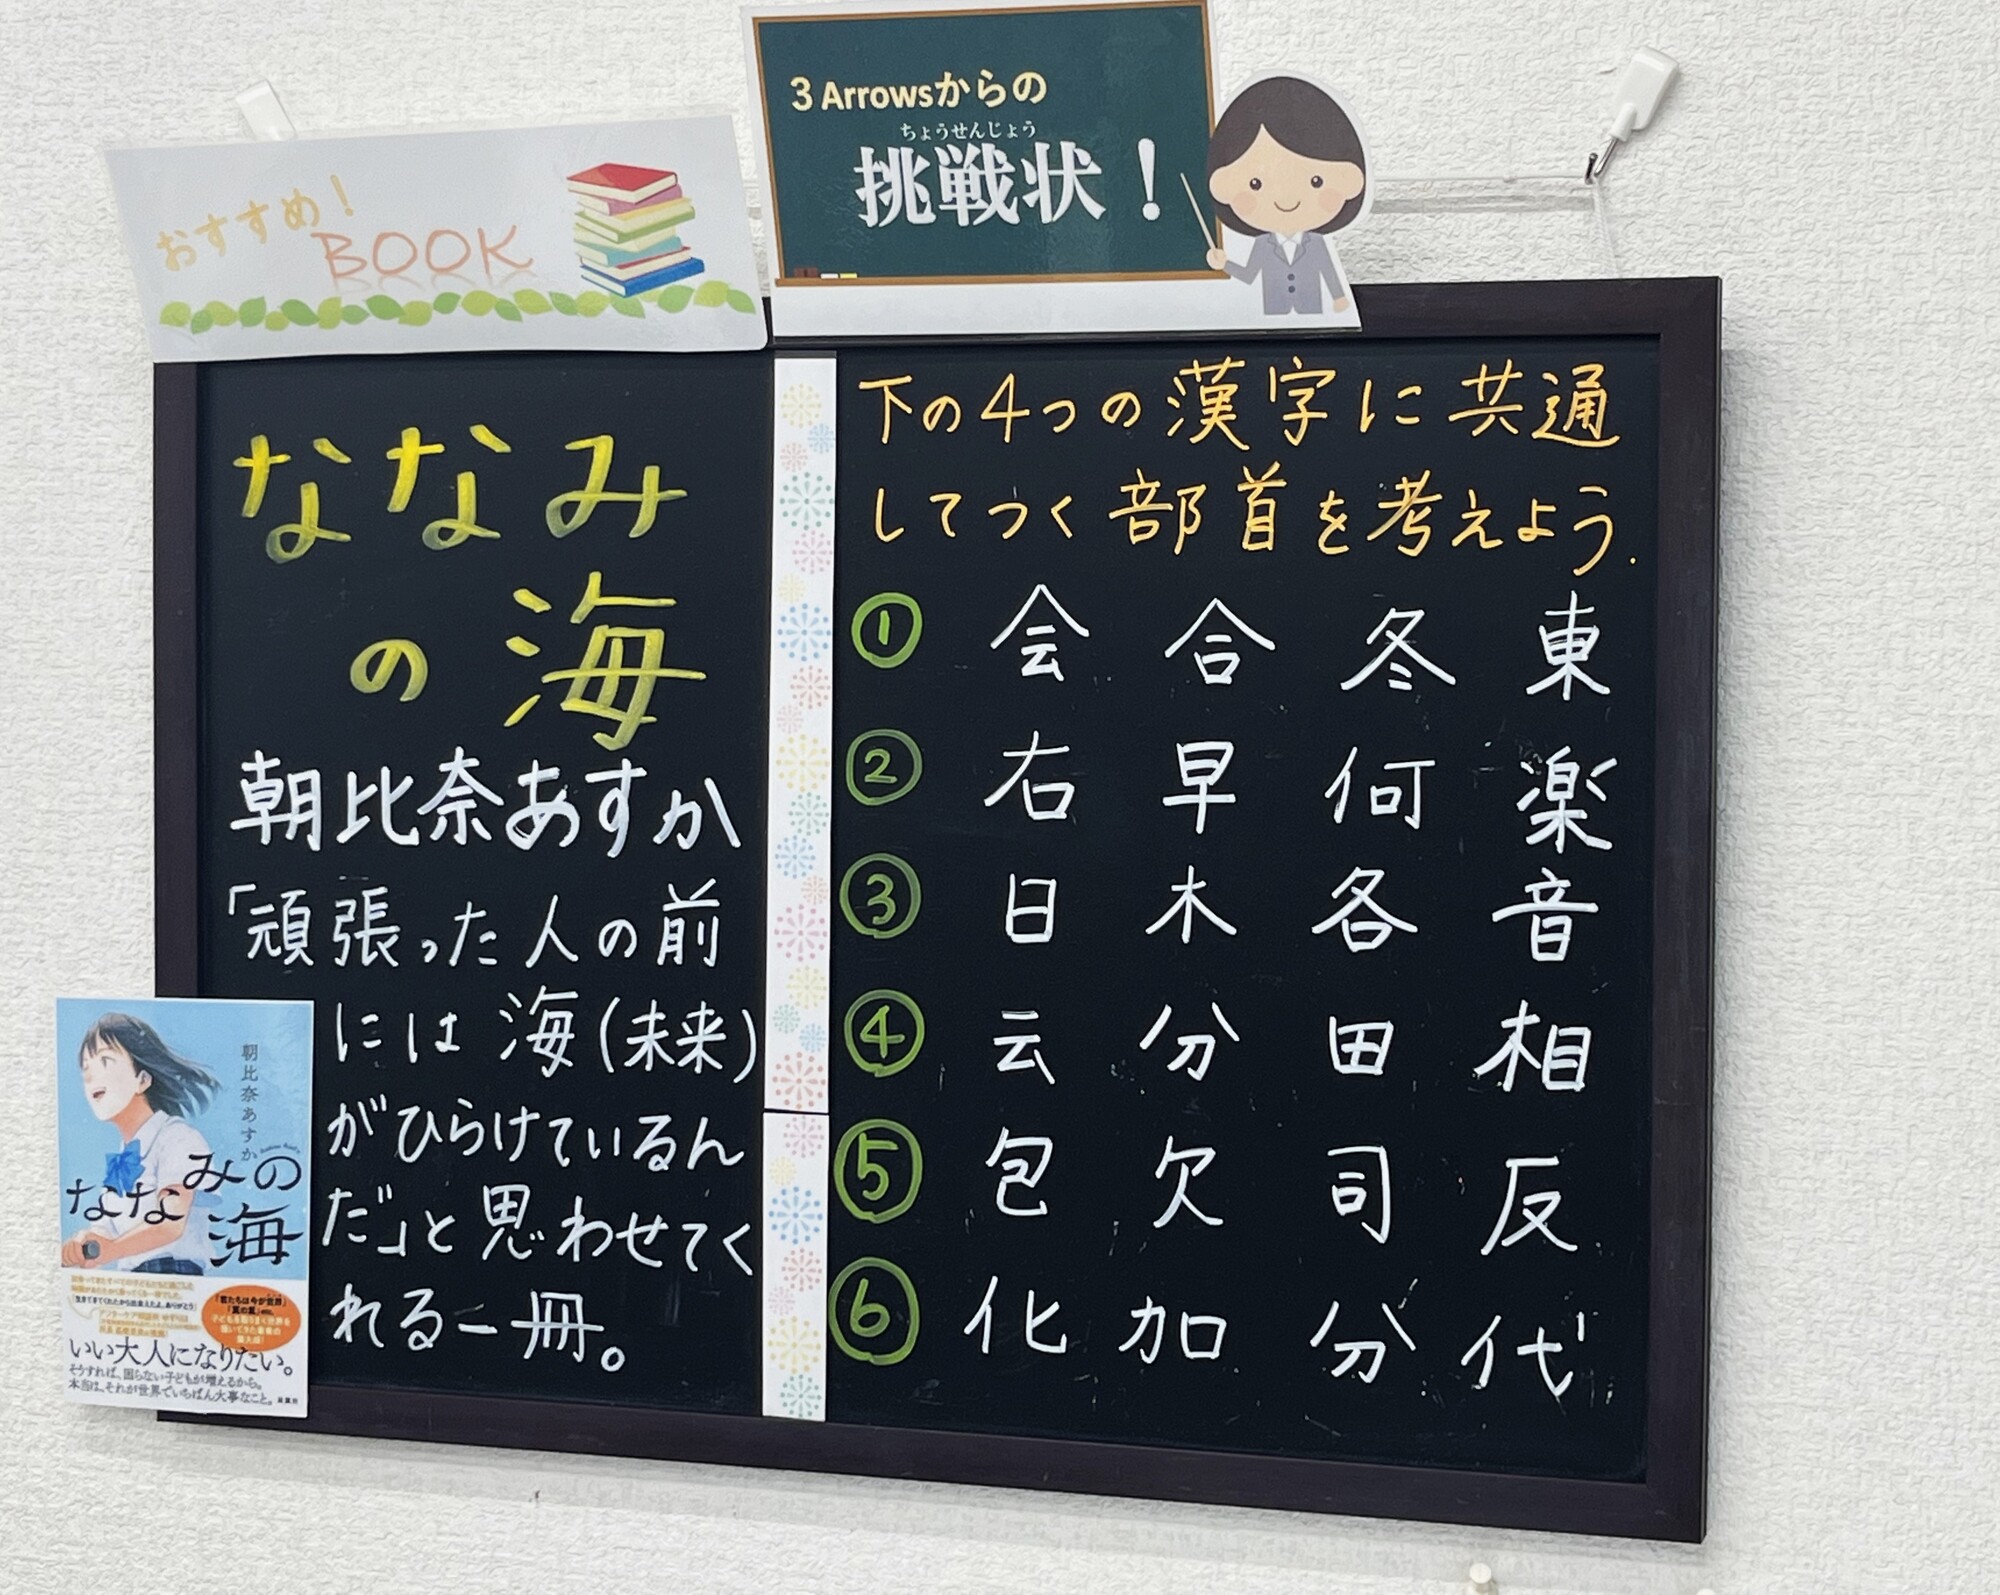 おすすめ！
BOOK
3 Arrowsからの
ちょうせんじょう
挑戦状！
ななみ
の海
朝比奈あすか
「頑張った人の前
には海(未来)
がひらけているん
だ」と思わせてく
れる一冊。
下の4つの漢字に共通
してつく部首を考えよう.
① 会 合 冬 東
② 右 早 何 楽
③ 日 木 各 音
④ 云 分 田 相
⑤ 包 欠 司 反
⑥ 化 加 分 代
朝比奈あすか
ななみの
海
いい大人になりたい。
そうすれば、困らない子どもが増えるから。
本当は、それが世界でいちばん大事なこと。